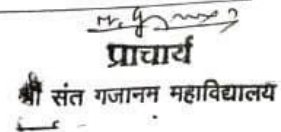 प्राचार्य
श्री संत गजानम महाविद्यालय